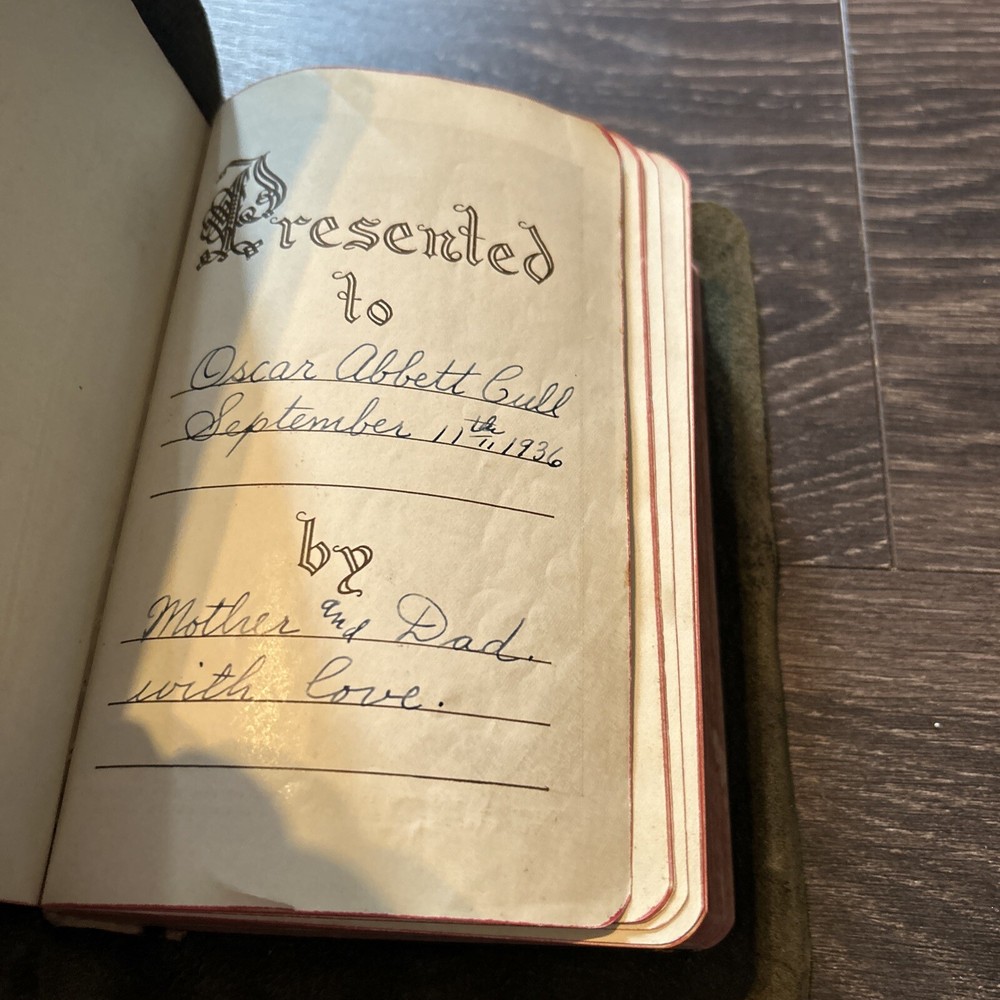 Presented
to
Oscar Abbett Cull
September 11th 1936
by
Mother and Dad.
with love.